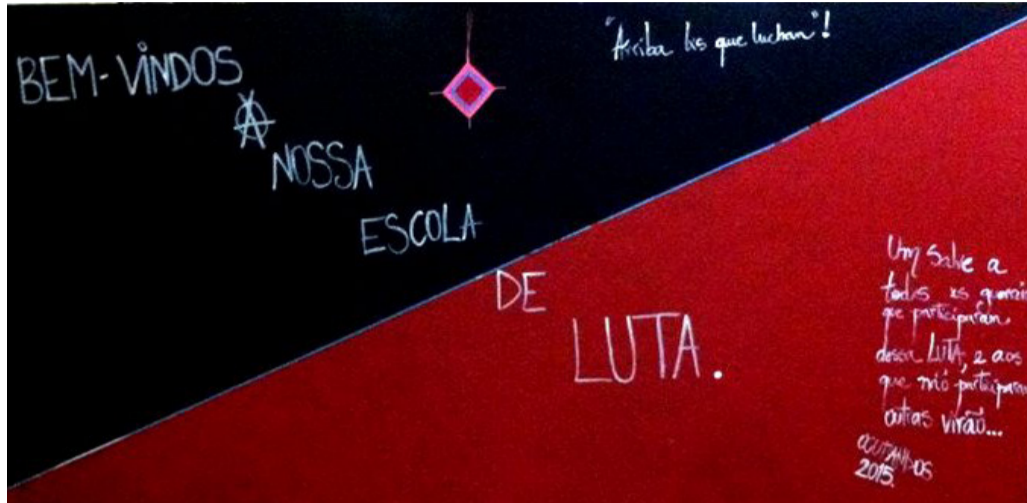 BEM-VINDOS
À
NOSSA
ESCOLA
DE
LUTA.
"Arriba lxs que luchan"!
Um salve a
todxs xs guerrei
que participaram
dessa LUTA, e aos
que não participaram
outras virão...
OCUPAMOS
2015.